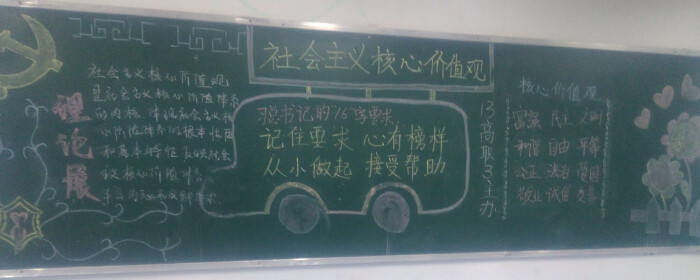 理论展
社会主义核心价值观
是社会主义核心价值体系
的内核，体现社会主义核
心价值体系的根本性质
和基本特征，反映社会
主义核心价值
社会主义核心价值观
习总书记的16字要求
记住要求 心有榜样
从小做起 接受帮助
13高职3主办
核心价值观
富强 民主 文明
和谐 自由 平等
公正 法治 爱国
敬业 诚信 友善